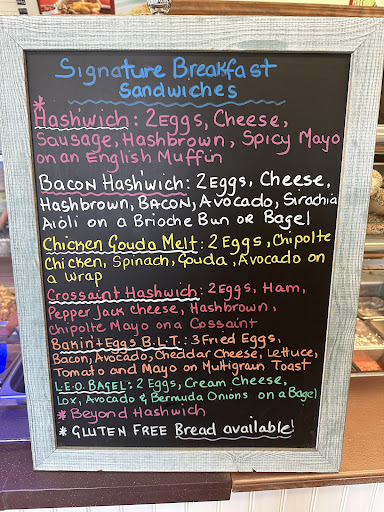 Signature Breakfast
Sandwiches
*
Hashwich: 2 Eggs, Cheese,
Sausage, Hashbrown, Spicy Mayo
on an English Muffin
Bacon Hash'wich: 2 Eggs, Cheese,
Hashbrown, Bacon, Avocado, Sirachia
Aioli on a Brioche Bun or Bagel
Chicken Gouda Melt: 2 Eggs, Chipolte
Chicken, Spinach, Gouda, Avocado on
a Wrap
Crossaint Hashwich: 2 Eggs, Ham,
Pepper Jack cheese, Hashbrown,
Chipolte Mayo on a Cossaint
Bakin'+Eggs B.L.T.: 3 Fried Eggs,
Bacon, Avocado, Cheddar Cheese, Lettuce,
Tomato and Mayo on Multigrain Toast
L.E.O. BAGEL: 2 Eggs, Cream cheese,
Lox, Avocado & Bermuda Onions on a Bagel
* Beyond Hashwich
* GLUTEN FREE Bread available!